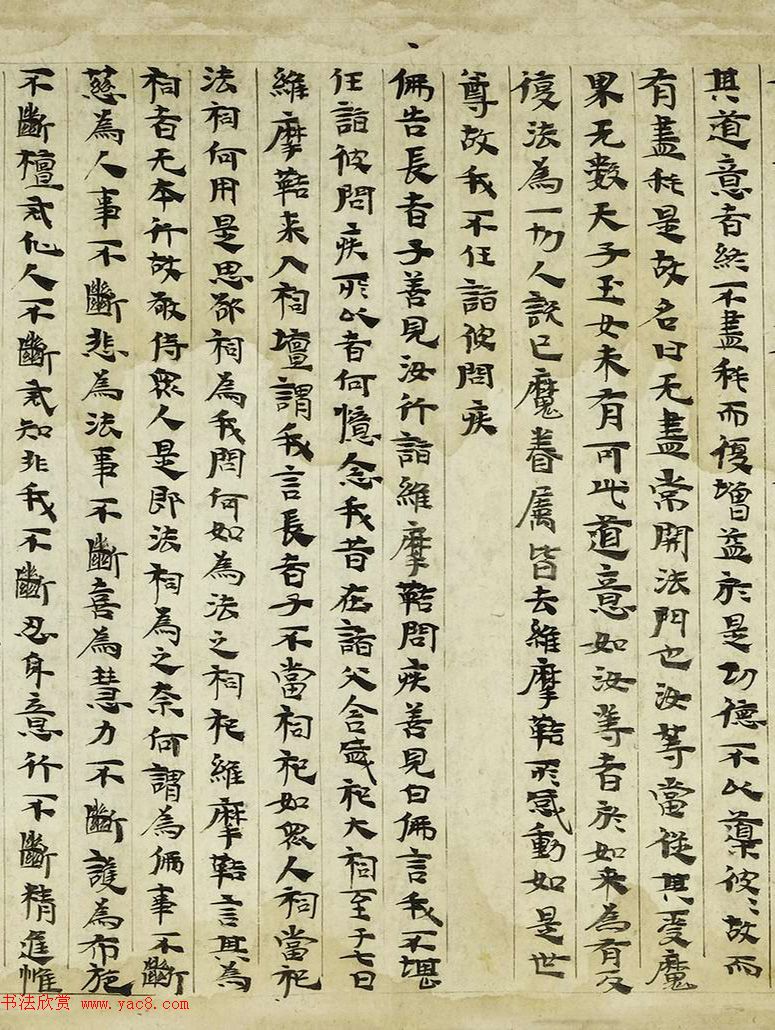 其道意者終不盡耗而復增益於是功德不以導彼彼故而
有盡耗是故名曰无盡常開法門也汝等當從其受魔
界无數天子玉女未有可此道意如汝等者於如来為有反
復法為一切人説已魔眷属皆去維摩鞊所感動如是世
尊故我不任詣彼問疾
佛告長者子善見汝行詣維摩鞊問疾善見白佛言我不堪
任詣彼問疾所以者何憶念我昔在詣父舎盛祀大祠至于七日
維摩鞊来入祠壇謂我言長者子不當祠祀如衆人祠當祀
法祠何用是思欲祠為我問何如為法之祠祀維摩鞊言其為
祠者无本行故敬待衆人是即法祠為之奈何謂為佛事不斷
慈為人事不斷悲為法事不斷喜為慧力不斷護為布施
不斷檀式化人不斷式知非我不斷忍身意行不斷精進惟
书法欣赏 www.yac8.com